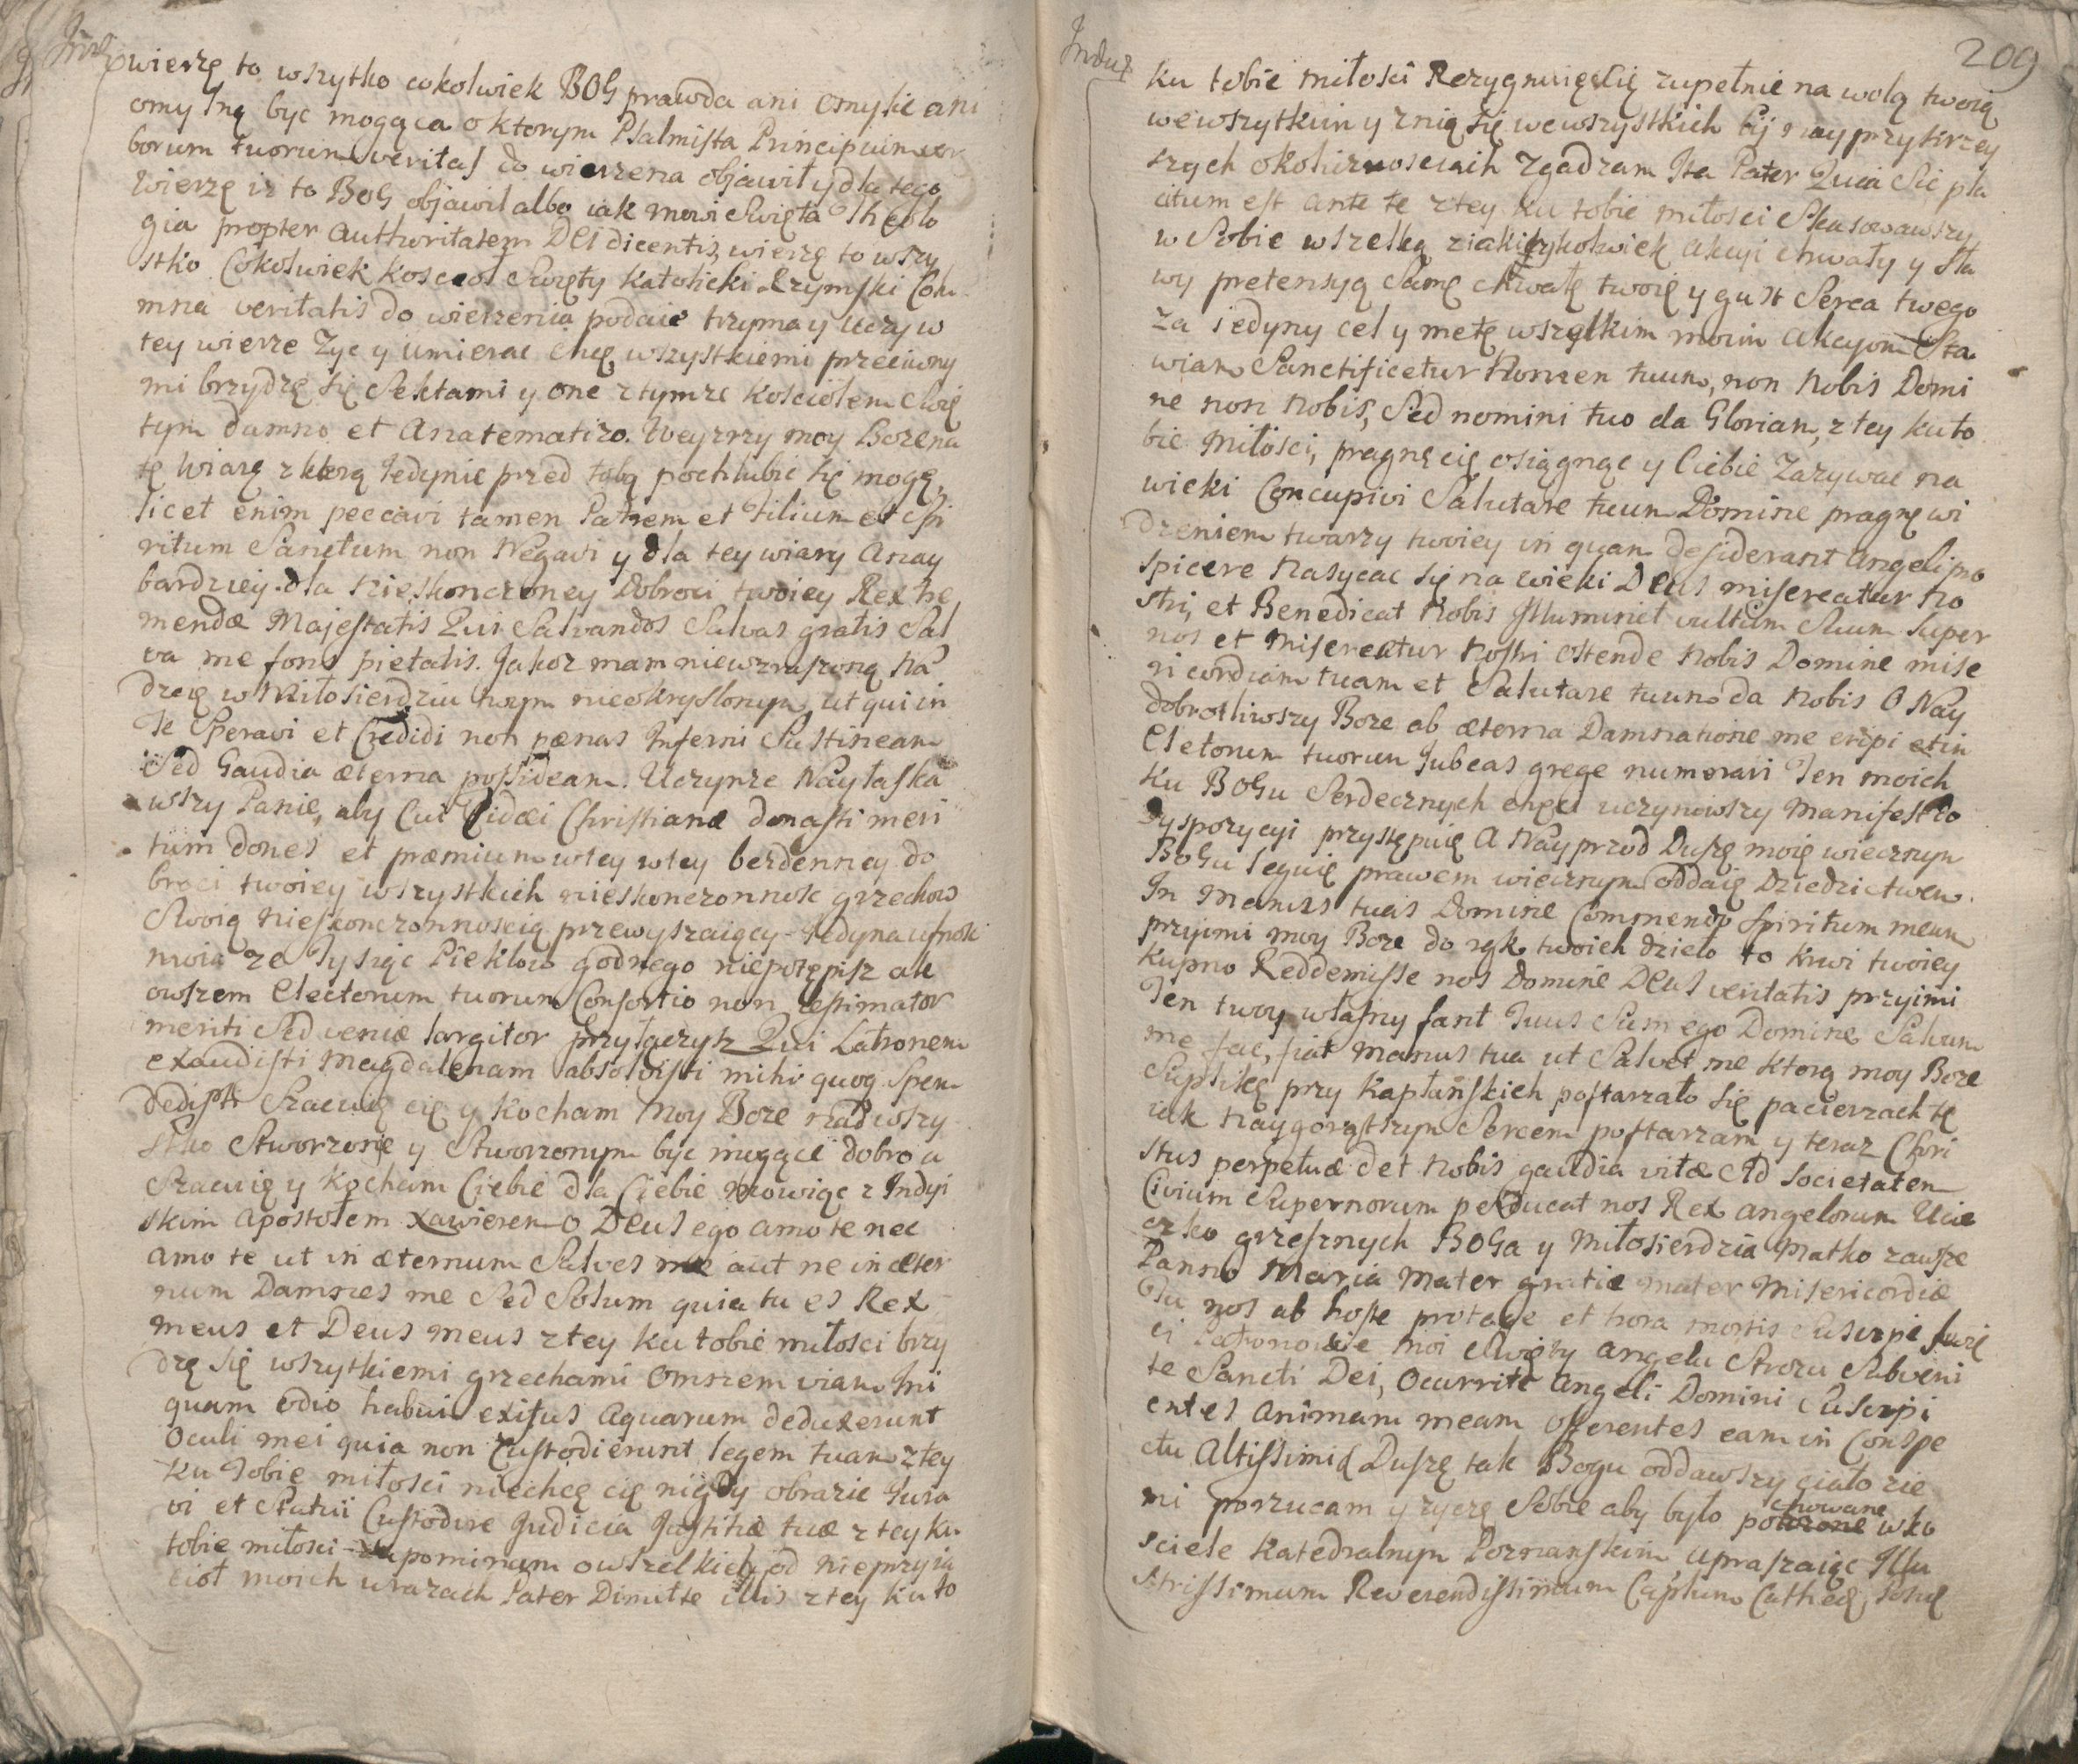 wierzę to wszytko cokolwiek BOG prawda ani omylic ani
omylną byc mogąca o ktorym Psalmista Principium ver
borum tuorum veritas do wierzena objawił y dla tego
wierzę iz to BOG objawił albo iak mowi Swięta Theolo
gia propter Authoritatem DEI dicentis, wierzę to wszy
stko Cokolwiek Koscioł Swięty Katolicki Rzymski Colu
mna veritatis do wierzenia podaie trzyma y Uczy w
tey wierze Zyc y Umierac chcę wszystkiemi przeciwny
mi brzydzę się Sektami y one z tymze Kosciołem Swię
tym damno et Anatematizo. Weyzrzy moy Boze na
tę Wiarę z ktorą Jedynie przed tobą pochlubic się mogę,
licet enim peccavi tamen Patrem et Filium et Spi
ritum Sanctum non Negavi y dla tey wiary A nay
bardziey dla nieskonczoney Dobroci twoiey Rex tre
mendæ Majestatis Qui Salvandos Salvas gratis Sal
va me fons pietatis. Jakoz mam niewzruszoną Na
dzeię w Miłosierdziu twym nieokryslonym, ut qui in
Te Speravi et Credidi non pænas Inferni Sustineam
Sed Gaudia æterna possideam. Uczynze Nayłaska
wszy Panie, aby Cui Fidæi Christianæ donasti meri
tum dones et præmium w tey w tey bezdenney do
broci twoiey wszystkich nieskonczonnosc grzechow
Swoią Nieskonczonnoscią przewyszaiącey Jedyna ufnosc
moia ze Tysiąc Piekłow godnego niepotępisz ale
owszem Electorum tuorum Consortio non æstimator
meriti Sed veniæ largitor przyłączysz Qui Latronem
exaudisti Magdalenam absolvisti mihi quoq Spem
dedisti Szacuię cię y Kocham Moy Boze nad wszy
stko Stworzone y Stworzonym byc mogące dobro a
Szacuię y Kocham Ciebie dla Ciebie Mowiąc z Indyi
skim Apostołem Xawierem O DEUS ego amo te nec
amo te ut in æternum Salves me aut ne in æter
num Damnes me Sed Solum quia tu es Rex
meus et Deus meus z tey ku tobie miłosci brzy
dzę się wszytkiemi grzechami Omnem viam Ini
quam odio habui exitus Aquarum deduxerunt
Oculi mei quia non Custodierunt legem tuam z tey
ku Tobie miłosci niechcę cię nigdy obrazic Jura
vi et Statui Custodire Judicia Justitiæ tuæ z tey ku
tobie miłosci zapominam o wszelkich od nieprzyia
cioł moich urazach Pater Dimitte illis z tey ku to
Indux
209
ku tobie miłosci Rezygnuię Się zupełnie na wolą twoią
we wszytkim y z nią się we wszystkich by nayprzykrzey
szych okolicznosciach zgadzam Ita Pater Quia Sic pla
citum est ante te z tey ku tobie miłosci Skasowawszy
w Sobie wszelką z iakieykolwiek akcyi chwały y sła
wy pretensyą Samę chwałę twoię y gust Serca twego
za iedyny cel y metę wszelkim moim Akcyom Sta
wiam Sanctificetur Nomen tuum, non Nobis Domi
ne non Nobis, Sed nomini tuo da Gloriam, z tey ku to
bie Miłosci, pragnę cię osiągnąc y Ciebie Zazywac na
wieki Concupivi Salutare tuum Domine pragnę wi
dzeniem twarzy twoiey in quam desiderant Angeli pro
spicere Nasycac się na wieki DEUS misereatur No
stri, et Benedicat Nobis Illuminet vultum Suum Super
nos et Misereatur Nostri Ostende Nobis Domine mise
ricordiam tuam et Salutare tuum da Nobis O Nay
dobrotliwszy Boze ab æterna Damnatione me eripi et in
Electorum tuorum Jubeas grege numerari Ten moich
Ku BOGU Serdecznych chęci uczyniwszy Manifest do
Dyspozycyi przystępuię A Nayprzod Duszę moię wiecznym
BOGU leguię prawem wiecznym oddaię Dziedzictwem.
In Manus tuas Domine Commendo Spiritum meum
przyimi moy Boze do rąk twoich dzieło to krwi twoiey
kupno Reddemisse nos Domine DEUS veritatis przyimi
Ten twoy własny fant Tuus Sum ego Domine Salvum
me fac, fiat Manus tua ut Salvet me ktorą moy Boze
Suplikę przy Kapłanskich postarzało się pacierzach tę
iak naygorętszym Sercem postarzam y teraz Chri
stus perpetuæ det Nobis gaudia vitæ Ad Societatem
Civium Supernorum perducat nos Rex angelorum Ucie
czko grzesznych BOGA y Miłosierdzia Matko zawsze
Panno Maria Mater gratiæ mater Misericordiæ
Tu nos ab hoste protege et hora mortis Suscipe Swię
ci Patronowie Moi Swięty Angelu Strozu Subveni
te Sancti Dei, Ocurrite Angeli Domini Suscipi
entes Animam meam Offerentes eam in Conspe
ctu Altissimi Duszę tak Bogu oddawszy ciało zie
mi porzucam y zyczę Sobie aby było pochowane w ko
sciele Katedralnym Poznanskim upraszaiąc Illu
strissimum Reverendissimum Caplum Cathedr Posn